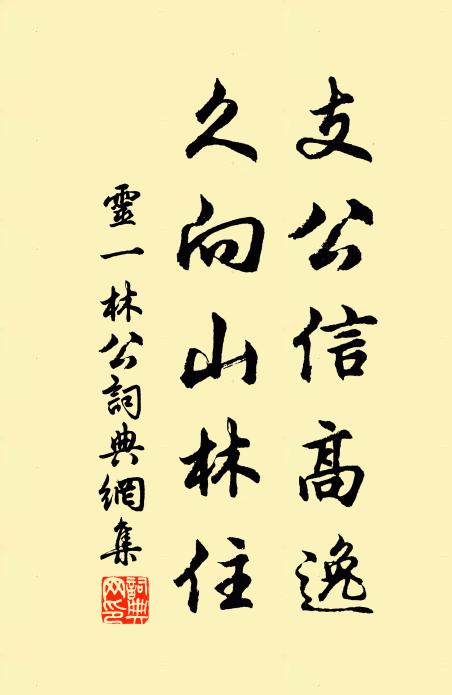 支公信高逸
久向山林住
靈一林公詞典網集
詞典网印